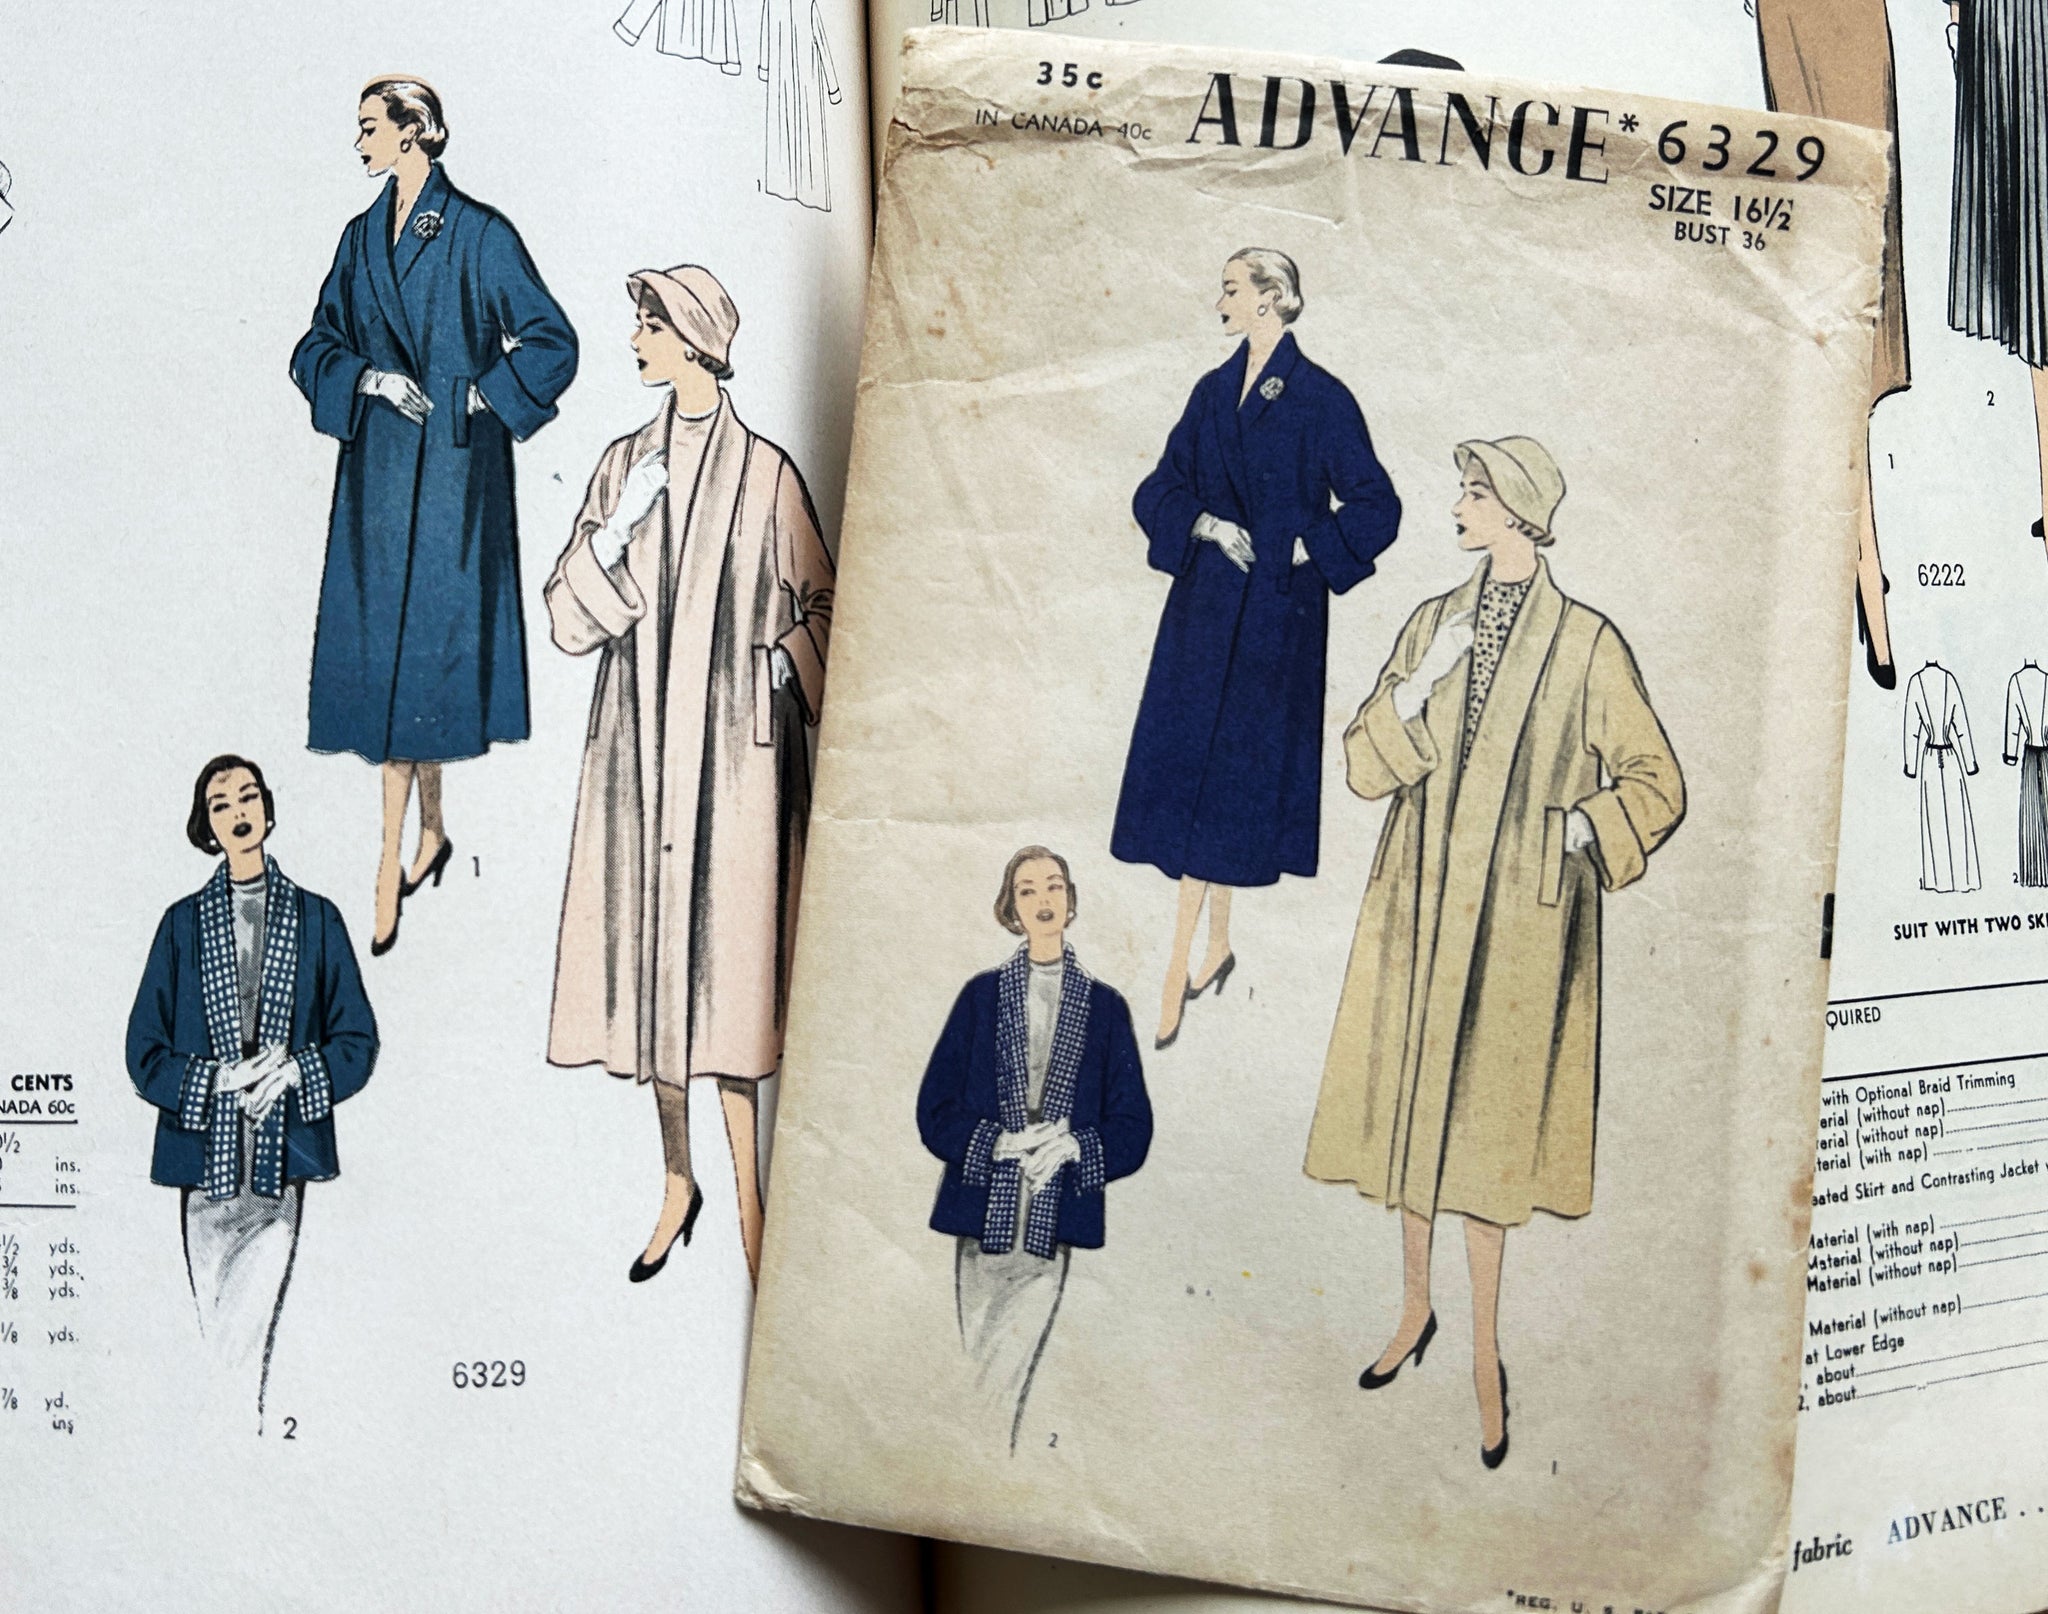 35c
IN CANADA 40c
ADVANCE* 6329
SIZE 16½
BUST 36
1
2
1
1
2
1
1
2
6222
1
2
SUIT WITH TWO
CENTS
60c
ins.
ins.
½ yds.
¾ yds.
⅜ yds.
⅛ yds.
⅞ yd.
ins
6329
2
1
QUIRED
with Optional Braid Trimming
(without nap)
(without nap)
(with nap)
Skirt and Contrasting Jacket
Material (with nap)
Material (without nap)
Material (without nap)
Material (without nap)
at Lower Edge
about
2, about
fabric ADVANCE . .
*REG. U. S.